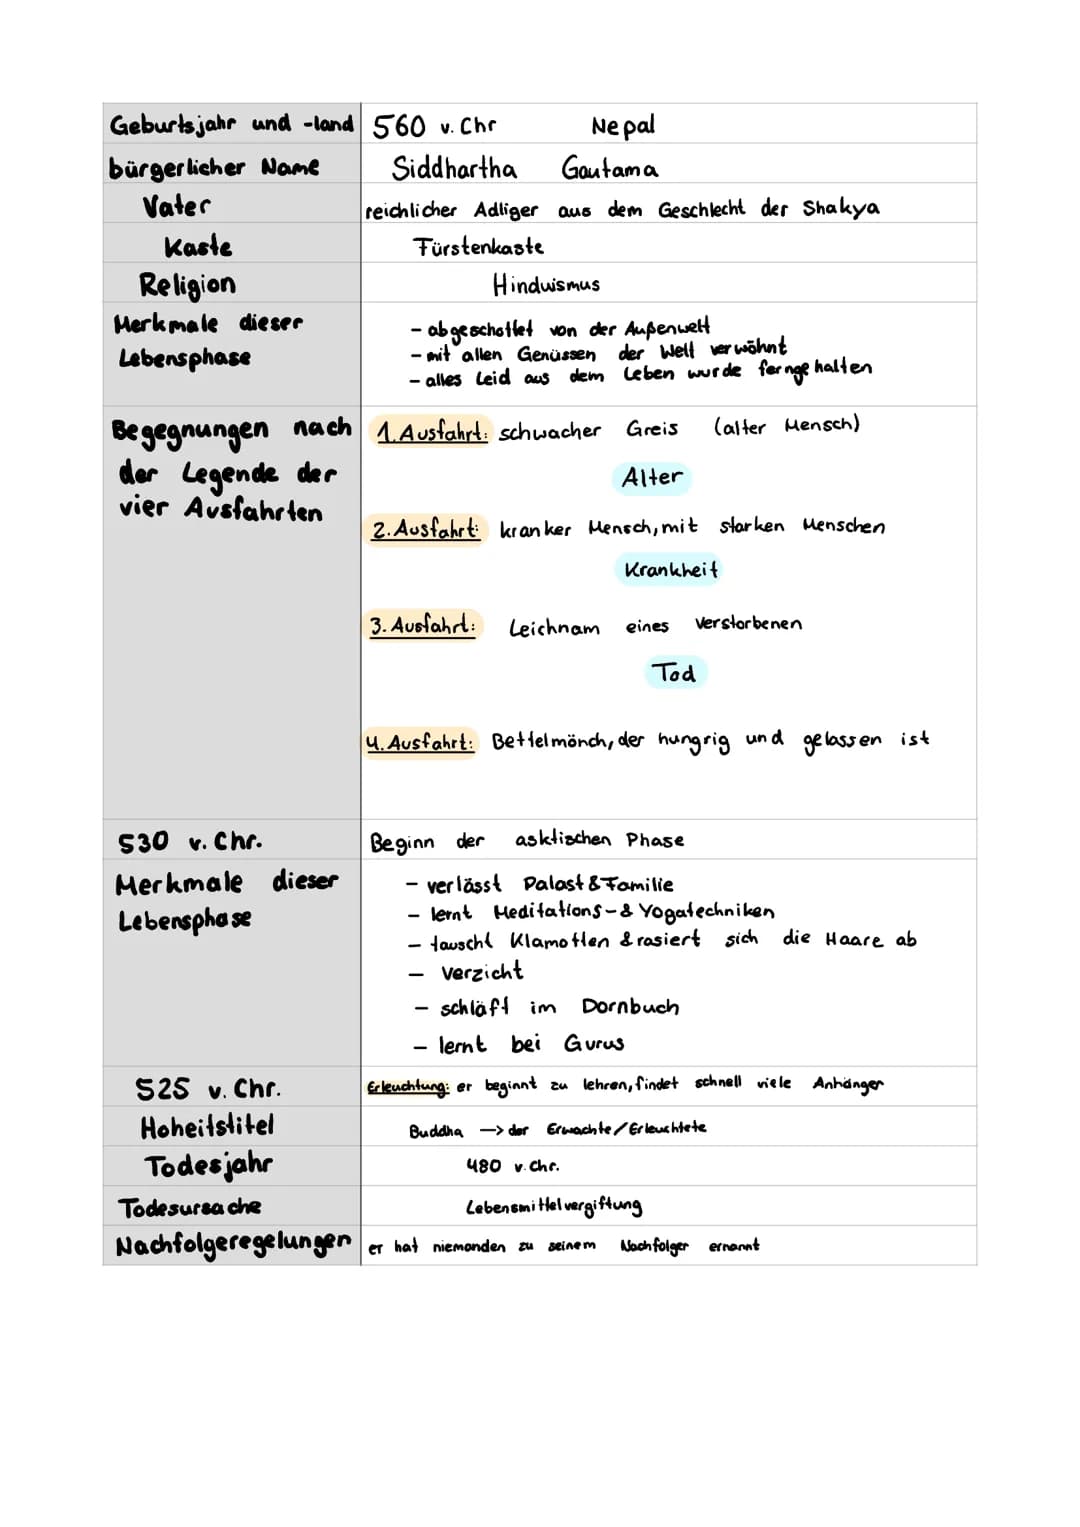 Geburtsjahr und -land 560 v. Chr Nepal
bürgerlicher Name Siddhartha Gautama
Vater reichlicher Adliger aus dem Geschlecht der Shakya
Kaste Fürstenkaste
Religion Hinduismus
Merkmale dieser
Lebensphase
- abgeschottet von der Außenwelt
- mit allen Genüssen der Welt verwöhnt
- alles Leid aus dem Leben wurde ferngehalten
Begegnungen nach
der Legende der
vier Ausfahrten
1. Ausfahrt: schwacher Greis (alter Mensch)
Alter
2. Ausfahrt: kranker Mensch, mit starken Menschen
Krankheit
3. Ausfahrt: Leichnam eines Verstorbenen
Tod
4. Ausfahrt: Bettelmönch, der hungrig und gelassen ist
530 v. Chr. Beginn der asktischen Phase
Merkmale dieser
Lebensphase
- verlässt Palast & Familie
- lernt Meditations- & Yogatechniken
- tauscht Klamotten & rasiert sich die Haare ab
- Verzicht
- schläft im Dornbuch
- lernt bei Gurus
525 v. Chr. Erleuchtung: er beginnt zu lehren, findet schnell viele Anhänger
Hoheitstitel Buddha -> der Erwachte/Erleuchtete
Todesjahr 480 v. Chr.
Todesursache Lebensmittelvergiftung
Nachfolgeregelungen er hat niemanden zu seinem Nachfolger ernannt